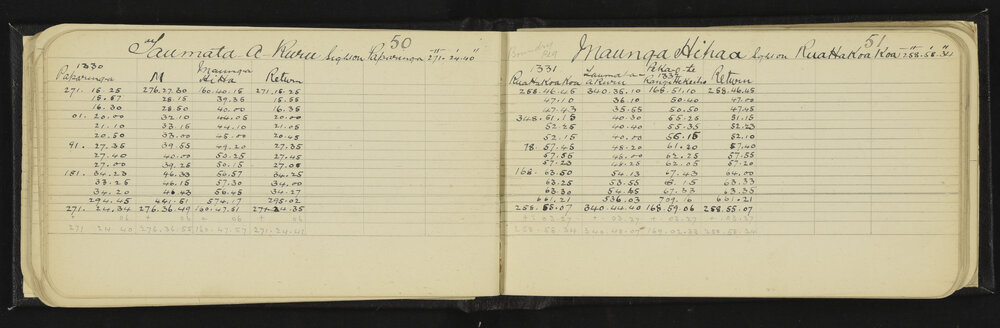 50
Taumata A Kuru Paparunga 271·24·40"
1330
Paparunga M Maunga Hiha Return
271. 15.25 276.27.30 160.40.15 271.15.25
15.57 28.15 39.35 15.55
16.30 28.50 40.00 16.35
01.20.00 32.10 44.05 20.00
21.10 33.15 44.10 21.05
20.50 33.00 45.00 20.45
91.27.35 39.55 49.20 27.35
27.40 40.00 50.25 27.45
27.00 39.25 50.15 27.05
181.34.23 46.33 56.57 34.25
33.25 46.15 57.30 34.00
34.20 46.43 56.45 34.27
294.45 441.51 574.17 295.02
271.24.34 276.36.49 160.47.51 271.24.35
+ 06 + 06 + 06 + 06
271 24.40 276.36.55 160.47.57 271.24.41
51
Maunga Hihaa RuaHaKoaKoa 258·58·34
1331 1332
RuaHaKoaKoa Taumata-A Kuru Return
258.46.45 340.35.10 168.51.10 258.46.45
47.10 36.10 50.40 47.00
47.43 35.55 50.50 47.45
348.51.15 40.30 55.25 51.15
52.25 40.40 55.35 52.23
52.15 40.00 56.15 52.10
78.57.45 48.20 61.20 57.40
57.55 46.00 62.25 57.55
57.23 48.25 62.05 57.20
168.63.50 54.13 67.43 64.00
63.25 53.55 63.33
63.30 54.55 67.33 63.35
661.21 536.03 709.16 661.21
258.55.07 340.44.40 168.59.06 258.55.07
+.03.27 +.03.27 +.03.27 +.03.27
258.58.34 340.48.07 169.02.33 258.58.34